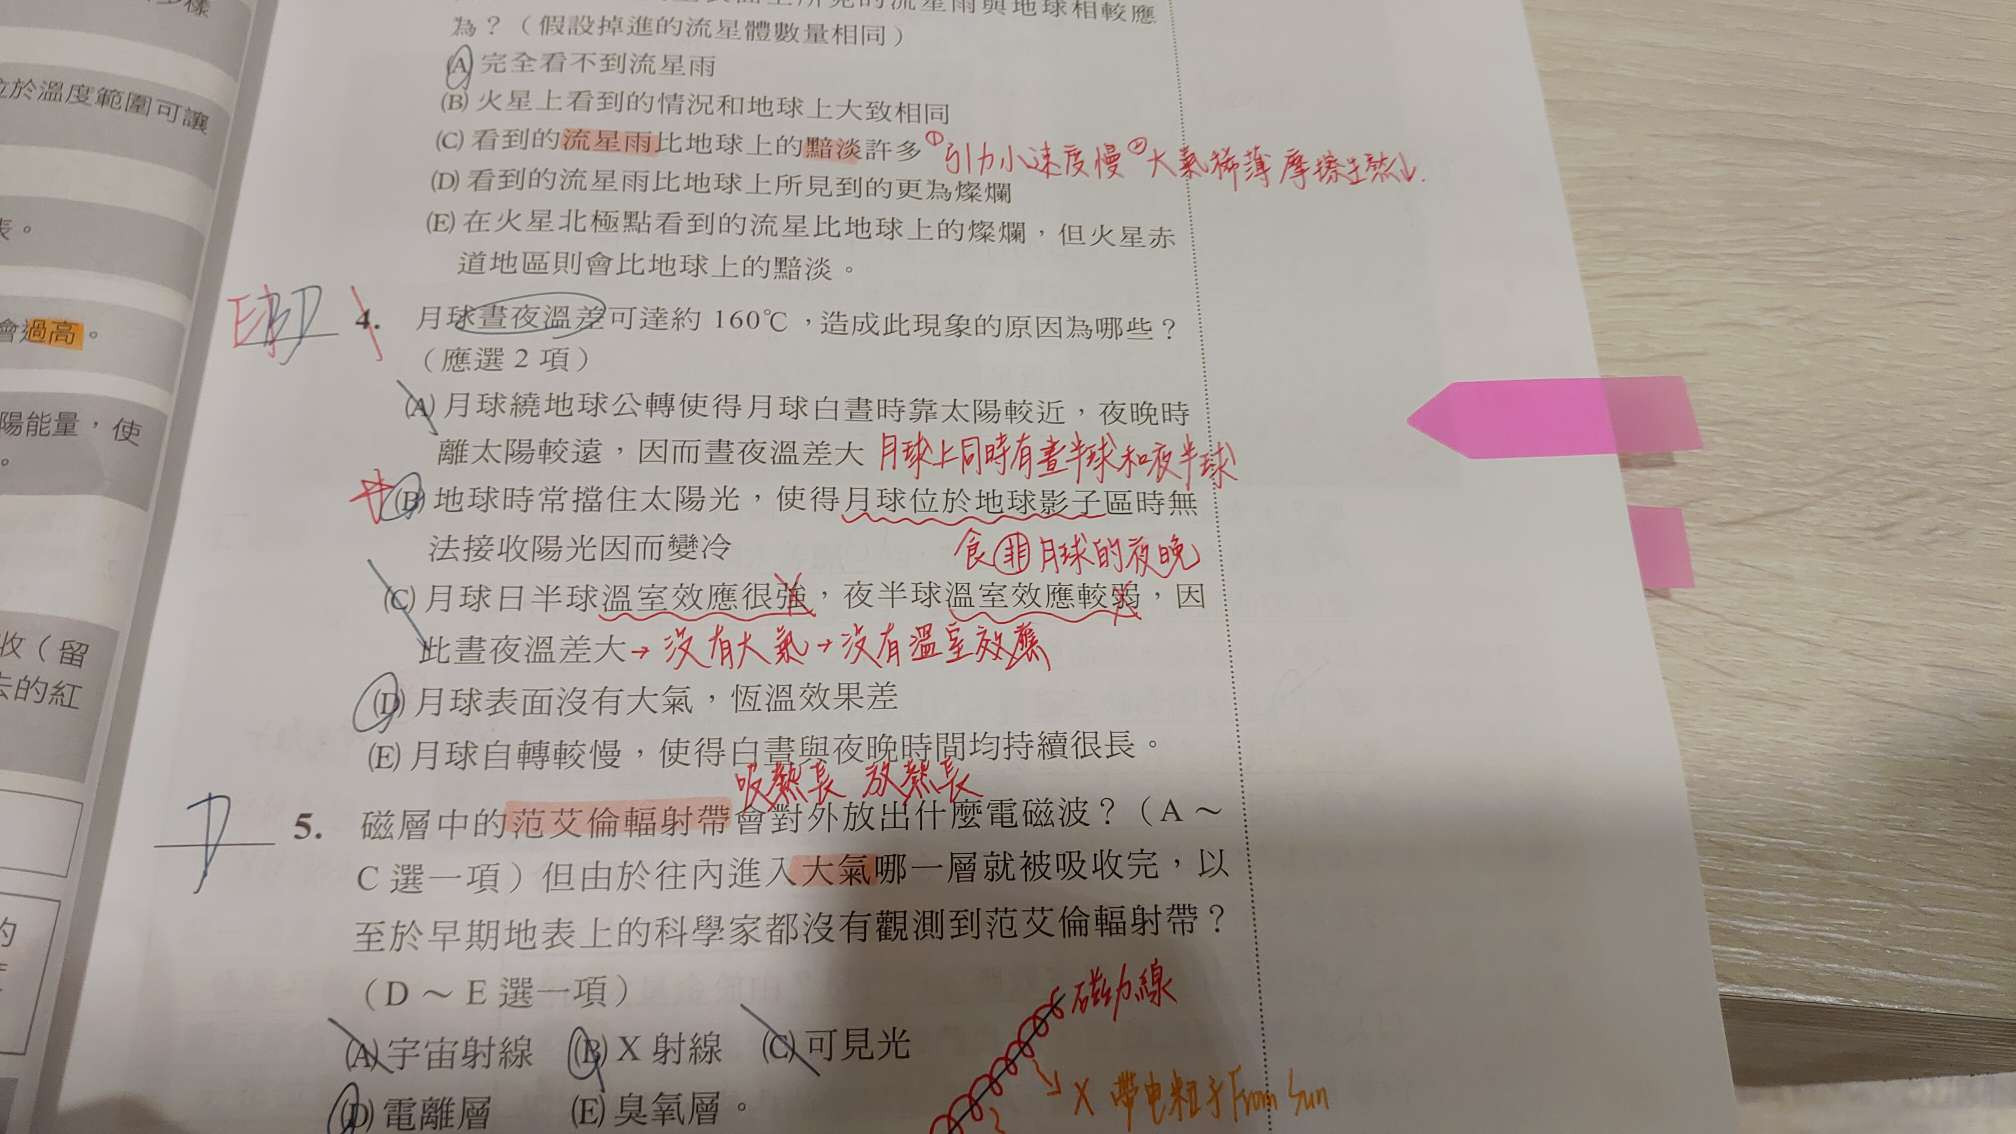 位於溫度範圍可讓
表。
會過高。
陽能量,使
。
收(留
去的紅
的
為?(假設掉進的流星體數量相同)
(A) 完全看不到流星雨
(B) 火星上看到的情況和地球上大致相同
(C) 看到的流星雨比地球上的黯淡許多 ①引力小速度慢 ②大氣稀薄 摩擦生熱↓.
(D) 看到的流星雨比地球上所見到的更為燦爛
(E) 在火星北極點看到的流星比地球上的燦爛,但火星赤
道地區則會比地球上的黯淡。
4. 月球晝夜溫差可達約 160℃,造成此現象的原因為哪些?
(應選 2 項)
(A) 月球繞地球公轉使得月球白晝時靠太陽較近,夜晚時
離太陽較遠,因而晝夜溫差大 月球上同時有晝半球和夜半球
(B) 地球時常擋住太陽光,使得月球位於地球影子區時無
法接收陽光因而變冷 食 非 月球的夜晚
(C) 月球日半球溫室效應很強,夜半球溫室效應較弱,因
此晝夜溫差大→沒有大氣→沒有溫室效應
(D) 月球表面沒有大氣,恆溫效果差
(E) 月球自轉較慢,使得白晝與夜晚時間均持續很長。
吸熱長 放熱長
D 5. 磁層中的范艾倫輻射帶會對外放出什麼電磁波?(A~
C 選一項)但由於往內進入大氣哪一層就被吸收完,以
至於早期地表上的科學家都沒有觀測到范艾倫輻射帶?
(D~E 選一項)
磁力線
(A) 宇宙射線 (B) X 射線 (C) 可見光
X 帶電粒子 From Sun
(D) 電離層 (E) 臭氧層。